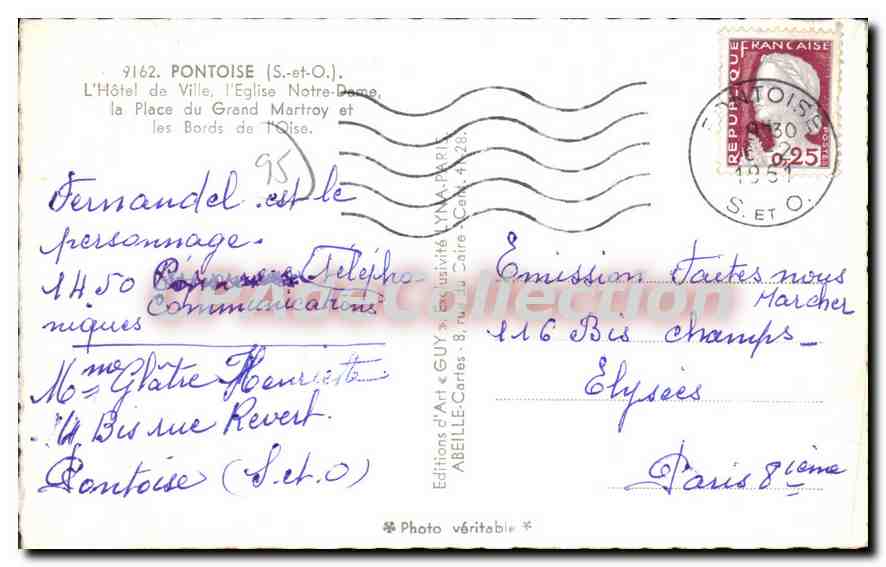 9162. PONTOISE (S.-et-O.).
L'Hôtel de Ville, l'Eglise Notre-Dame,
la Place du Grand Martroy et
les Bords de l'Oise.
95
Fernandel est le
personnage.
1450 Télépho-
Communications
niques
Mme Glâtre Henriette
4 Bis rue Revert.
Pontoise (S. et. O)
Editions d'Art « GUY » Exclusivité LYNA-PARIS.
ABEILLE-Cartes - 8, rue du Caire - Cent. 41-28.
REPUBLIQUE FRANCAISE
POSTES
0,25
PONTOISE
30
1961
S. ET O.
Emission Faites nous
Marcher
116 Bis champs-
Elysées
Paris 8ième
Photo véritable